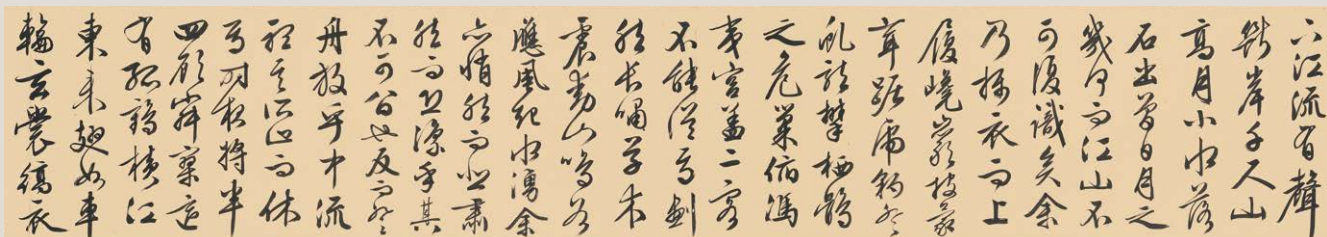 下江流有聲
斷岸千尺山
高月小水落
石出曾日月之
幾何而江山不
可復識矣余
乃攝衣而上
履巉巖披蒙
茸踞虎豹登
虯龍攀栖鶻
之危巢俯馮
夷宮蓋二客
不能從焉劃
然長嘯草木
震動山鳴谷
應風起水湧余
亦悄然而悲肅
然而恐凜乎其
不可留也反而登
舟放乎中流
聽其所止而休
焉時夜將半
四顧寂寥適
有孤鶴橫江
東來翅如車
輪玄裳縞衣